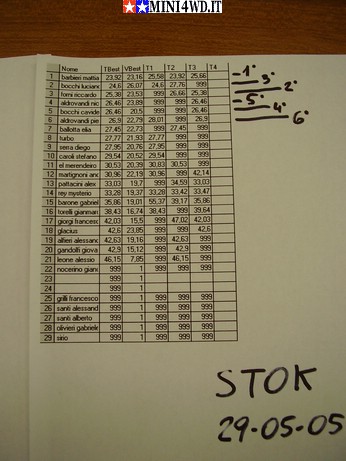 ★★MINI4WD.IT★★
Nome TBest VBest T1 T2 T3 T4
1 barbieri mattia 23,92 23,16 25,58 23,92 25,66
2 bocchi luciano 24,6 26,07 24,6 27,76 999
3 forni riccardo 25,38 23,53 999 26,66 25,38
4 aldrovandi nic 26,46 23,89 999 999 26,46
5 bocchi davide 26,46 20,5 999 999 26,46
6 aldrovandi pie 26,9 22,79 28,01 999 26,9
7 ballotta elia 27,45 22,73 999 27,45 999
8 turbo 27,77 21,93 27,77 999 999
9 serra diego 27,95 20,76 27,95 999 999
10 caroli stefano 29,54 20,52 29,54 999 999
11 el merendeiro 30,53 20,39 30,83 30,53 999
12 martignoni an 30,96 22,19 30,96 999 42,14
13 pattacini alex 33,03 19,7 999 34,59 33,03
14 rey mysterio 33,28 19,37 33,28 33,42 33,47
15 barone gabriel 35,86 19,01 55,37 39,17 35,86
16 torelli gianmari 38,43 16,74 38,43 999 39,64
17 giorgi francesc 42,03 15,5 999 47,02 42,03
18 glacius 42,6 23,85 999 999 42,6
19 alfieri alessand 42,63 19,16 999 42,63 999
20 gandolfi giova 42,9 15,12 42,9 999 999
21 leone alessio 46,15 7,85 999 46,15 999
22 nocerino gian 999 1 999 999 999
23 999 1
24 999 1
25 grilli francesco 999 1 999 999 999
26 santi alessand 999 1 999 999 999
27 santi alberto 999 1 999 999 999
28 olivieri gabriele 999 1 999 999 999
29 sirio 999 1 999 999 999
-1°
3°
2°
-5°
4°
6°
STOK
29-05-05